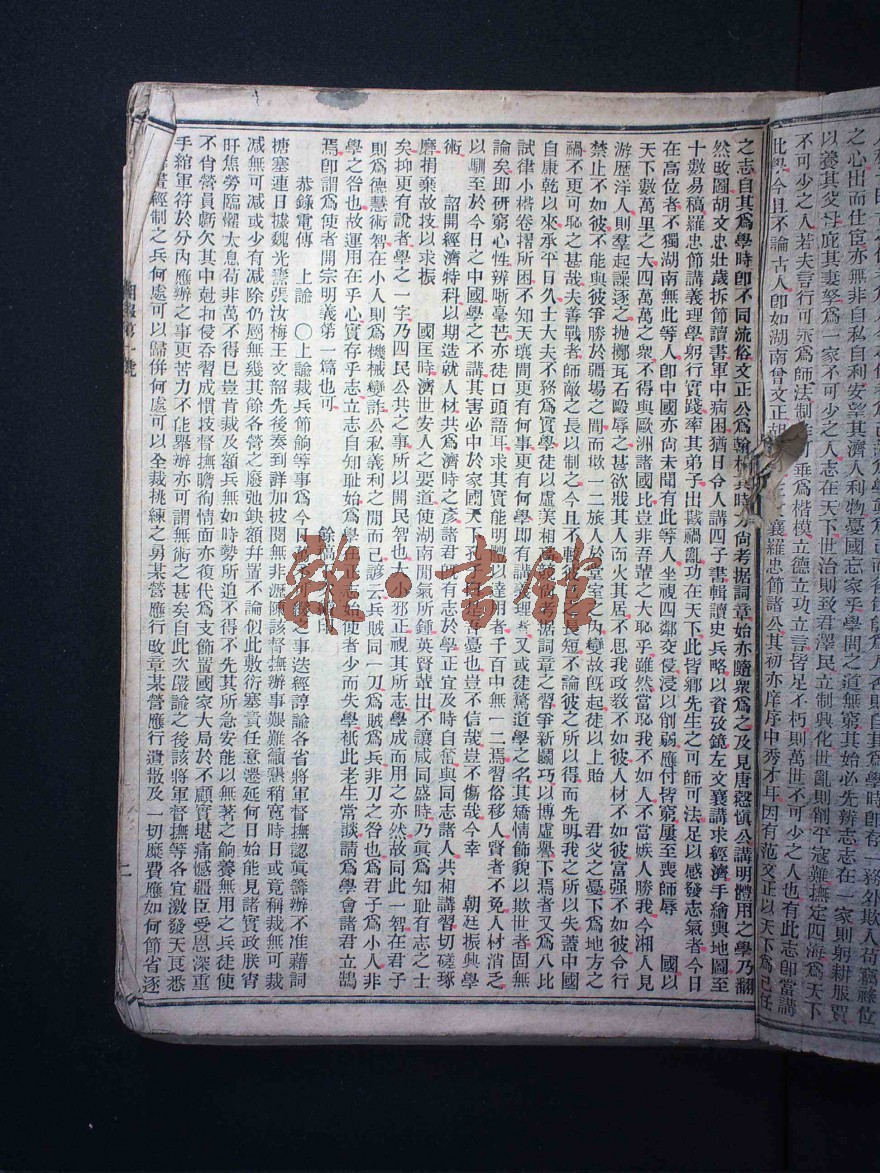 之心出而仕宦亦無非自私自利安望其濟人利物憂國忘家乎學問之道無窮其始必先辨志志在一家則躬耕服賈
以養其父母庇其妻孥爲一家不可少之人志在天下世治則致君澤民立制興化世亂則削平寇難撫定四海爲天下
不可少之人若夫言行可爲師法制作垂爲楷模立德立功立言皆足不朽則萬世不可少之人也有此志卽當講
此學今且不論古人卽如湖南曾文正胡 襄羅忠節諸公其初亦庠序中秀才耳因有范文正以天下爲己任
之志自其爲學時卽不同流俗文正公爲翰林其時方尚考据詞章始亦隨衆爲之及見唐慤愼公講明體用之學乃翻
然改圖胡文忠壯歲折節讀書軍中病困猶日令人講四子書輯讀史兵略以資攷鏡左文襄講求經濟手繪輿地圖至
十數易稿羅忠節講義理學躬行實踐率其弟子出戡禍亂功在天下此皆鄉先生之可師可法足以感發志氣者今日
在高位者不獨湖南無此等人卽中國亦尚未聞有此等人坐視四鄰交侵浸以削弱應付皆窮屢至喪師辱 國以
天下數萬里之大四萬萬之衆不得與歐洲諸國比豈非吾輩之大恥乎雖然當恥我不如人不當嫉人勝我今湘人見
游歷洋人則羣起譟逐之拋擲瓦石毆辱之甚欲戕其人而火其居不思我政敎不如彼人材不如彼富强不如彼令行
禁止不如彼不能與彼爭勝於疆場之間而敢一二旅人於堂室之內變故旣起徒以上貽 君父之憂下爲地方之
禍不更可恥之甚哉夫善戰者師敵之長以制之今且不 長短不論彼之所以得而先明我之所以失蓋中國
自康乾以來承平日久士大夫不務爲實學徒以虛美相 考据詞章之習爭新鬬巧以博虛譽下焉者又爲八比
試律小楷卷摺所困不知天壤間更有何事更有何學卽有講 理者又或徒騖道學之名其矯情飾貌以欺世者固無
論矣卽研窮心性辨晰毫芒亦徒口頭語耳求其實能明體以達用者千百中無一二焉習俗移人賢者不免人材消乏
以馴至於今日之中國學之不講其害必中於家國天下孔子 爲憂也豈不信哉豈不傷哉今幸 朝廷振興學
術 詔開經濟特科以期造就人材共爲濟時之彥諸君 有志於學正宜及時自奮與同志諸人共相講習切磋琢
磨捐棄故技以求振 國匡時濟世安人之要道使湖南閒氣所鍾英賢蔚出不讓咸同盛時乃眞爲知耻有志之士
矣抑更有說者學之一字乃四民公共之事所以開民智也大小邪正視其所志學成而用之亦然故同此一智在君子
則爲德慧術智在小人則爲機械變詐公私義利之閒而已諺云兵賊同一刀爲賊爲兵非刀之咎也爲君子爲小人非
學之咎也故運用在乎心實存乎志立志自知耻始爲學在 志始使者少而失學祇此老生常談請爲學會諸君立鵠
焉卽謂爲使者開宗明義第一篇也可
恭錄電傳 上諭 ○上諭裁兵節餉等事爲今 之事迭經諄諭各省將軍督撫認眞籌辦不准藉詞
搪塞連日據魏光燾張汝梅王文韶先後奏到詳加披閱無非瀝陳該督撫辦事艱難籲懇稍寬時日或竟稱裁無可裁
减無可减或少有减除仍屬無幾其餘各營之廢弛缺額幷置不論似此敷衍塞責任意遷延何日始能見諸實政朕宵
旰焦勞臨懼太息苟非萬不得已豈肯裁及額兵無如時勢所迫不得不先其所急安能以無著之餉養無用之兵徒使
不肖營員虧欠其中尅扣侵吞習成慣技督撫瞻徇情面亦復代爲支飾置國家大局於不顧實堪痛憾疆臣受恩深重
手綰軍符於分內應辦之事更苦力不能舉辦亦可謂無術之甚矣自此次嚴諭之後該將軍督撫等各宜激發天良悉
經制之兵何處可以歸併何處可以全裁挑練之勇某營應行改章某營應行遣散及一切糜費應如何節省逐
湘報第一號
二
雜·書館